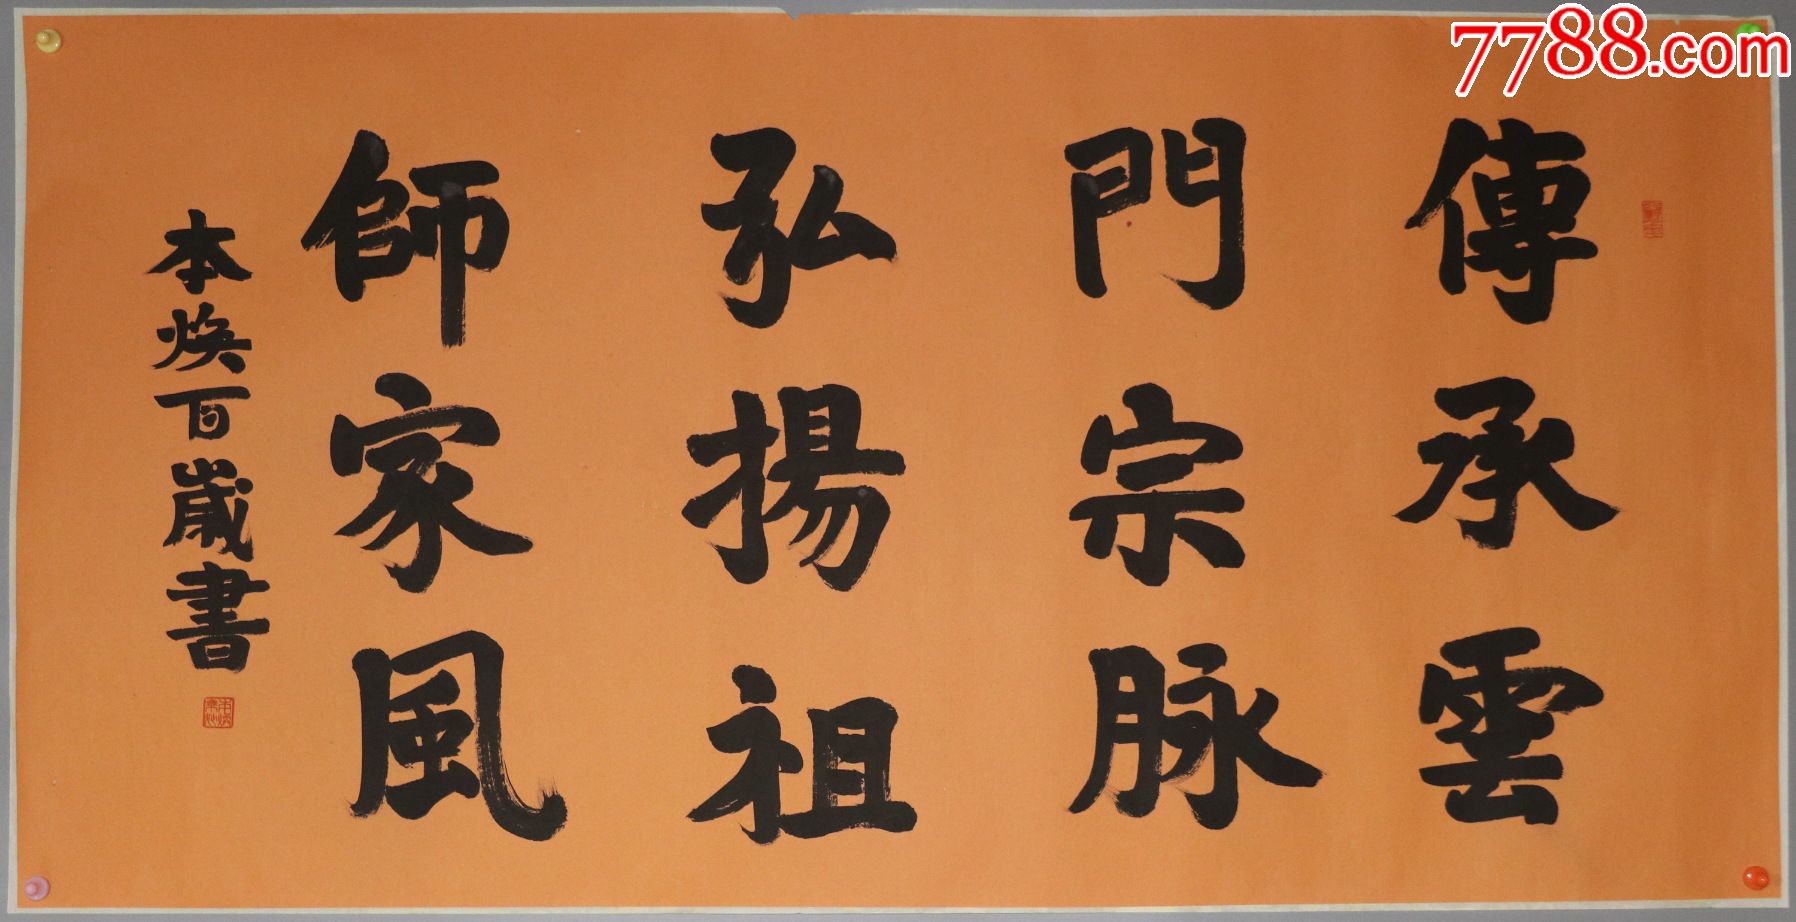 傳承雲
門宗脉
弘揚祖
師家風
本焕百歲書
7788.com